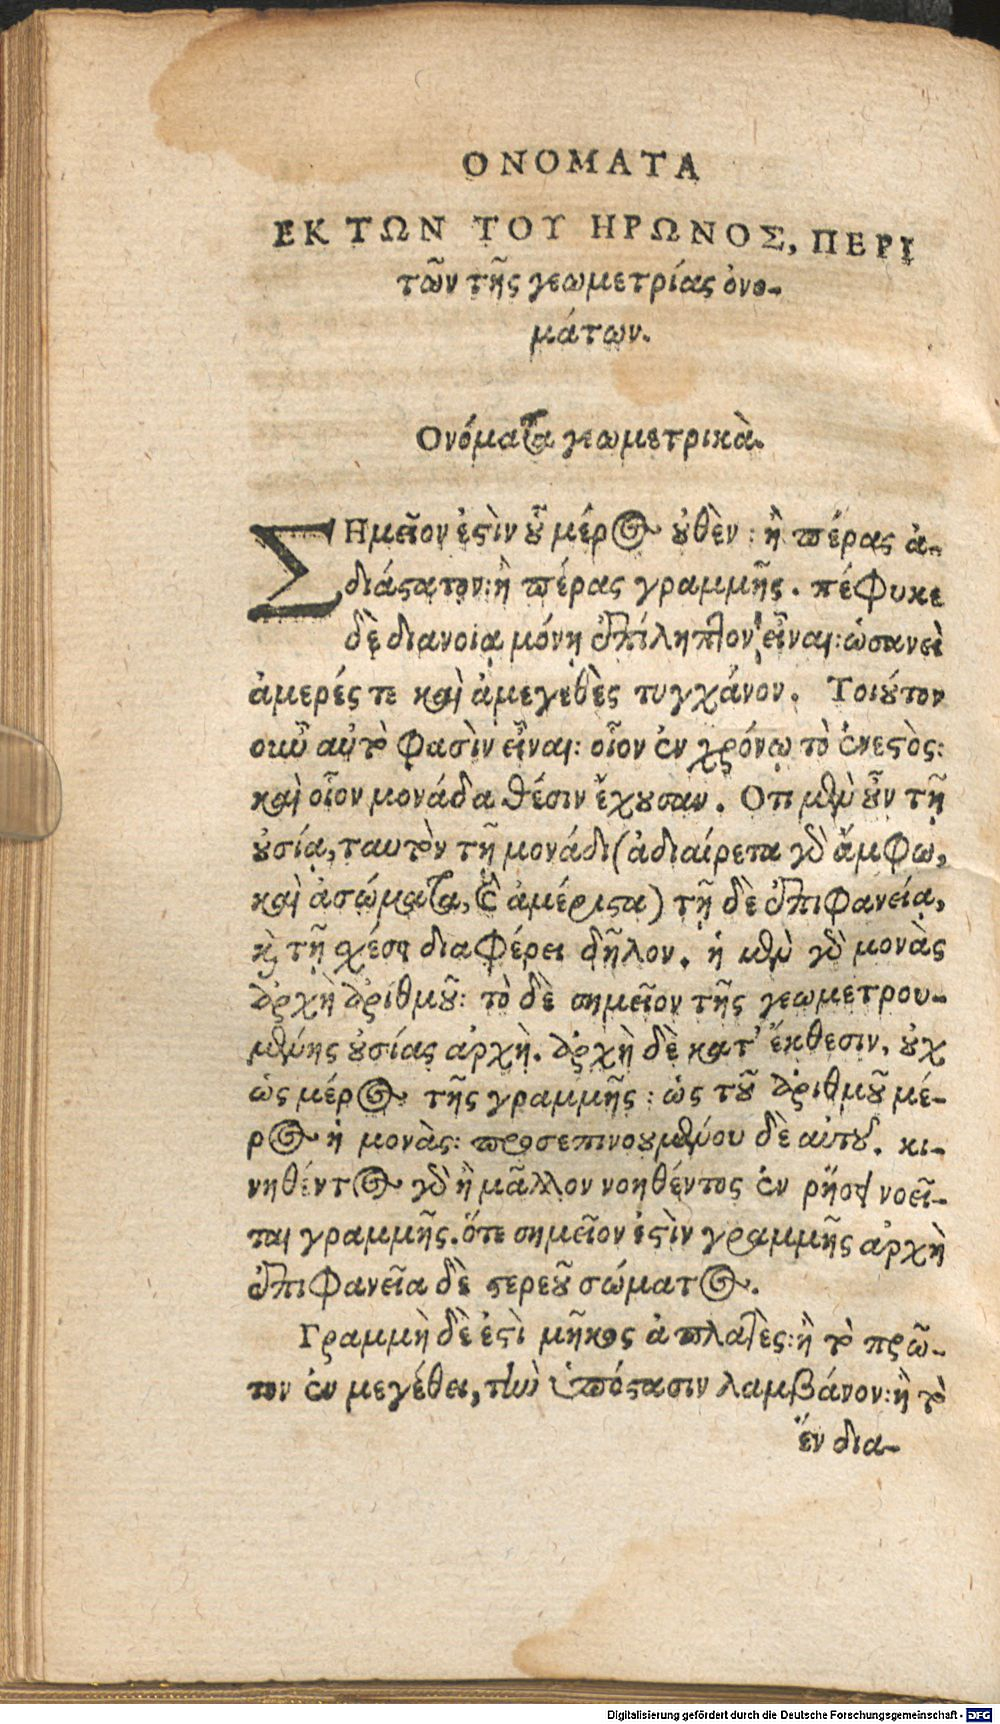 ΟΝΟΜΑΤΑ
ΕΚ ΤΩΝ ΤΟΥ ΗΡΩΝΟΣ, ΠΕΡΙ
τῶν τῆς γεωμετρίας ὀνο-
μάτων.
Ονόματα γεωμετρικὰ.
ΣΗμεῖον ἐϛὶν οὗ μέρος οὐθὲν: ἢ πέρας ἀ-
διάϛατον: ἢ πέρας γραμμῆς. πέφυκε
δὲ διανοίᾳ μόνῃ ἐπίληπτον εἶναι: ὡσανεὶ
ἀμερές τε καὶ ἀμεγεθὲς τυγχάνον. Τοιοῦτον
οὖν αὐτὸ φασὶν εἶναι: οἷον ἐν χρόνῳ τὸ ἐνεϛὸς:
καὶ οἷον μονάδα θέσιν ἔχουσαν. Οτι μὲν οὖν τῇ
οὐσίᾳ, ταυτὸν τῇ μονάδι (ἀδιαίρετα γὰρ ἄμφω,
καὶ ἀσώματα, καὶ ἀμέριϛα) τῇ δὲ ἐπιφανείᾳ,
καὶ τῇ σχέσει διαφέρει δῆλον. ἡ μὲν γὰρ μονὰς
ἀρχὴ ἀριθμοῦ: τὸ δὲ σημεῖον τῆς γεωμετρου-
μένης οὐσίας ἀρχὴ. ἀρχὴ δὲ κατ' ἔκθεσιν, οὐχ
ὡς μέρος τῆς γραμμῆς: ὡς τοῦ ἀριθμοῦ μέ-
ρος ἡ μονὰς: προσεπινοουμένου δὲ αὐτοῦ. κι-
νηθέντος γὰρ ἢ μᾶλλον νοηθέντος ἐν ῥύσει νοεῖ-
ται γραμμῆς. ὅτε σημεῖον ἐϛὶν γραμμῆς ἀρχὴ
ἐπιφανεῖα δὲ ϛερεοῦ σώματος.
Γραμμὴ δὲ ἐϛὶ μῆκος ἀπλατὲς: ἢ τὸ πρῶ-
τον ἐν μεγέθει, τὴν ὑπόϛασιν λαμβάνον: ἢ τὸ
ἓν δια-
Digitalisierung gefördert durch die Deutsche Forschungsgemeinschaft - DFG